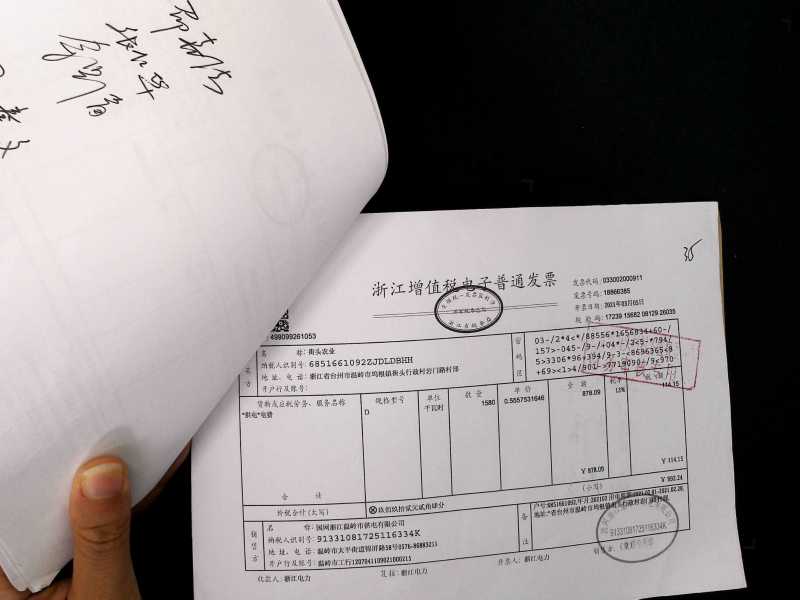 35
浙江增值税电子普通发票
发票代码: 033002000911
发票号码: 18866385
开票日期: 2021年03月05日
校验码: 17239 15682 08129 26035
499099261053
名 称: 街头农业
纳税人识别号: 6851661092ZJDLDBHH
地 址、电 话: 浙江省台州市温岭市坞根镇街头行政村岩门路村部
开户行及账号:
密码区
03-/2*4<*/88556*1656834+60-/
157>-045-/9-/+04*-/2<5-*794/
5>3306*96+394/9-3-<8696365<8
+69><1>4/901->7719090-/9<970
货物或应税劳务、服务名称 规格型号 单位 数量 单价 金额 税率 税额
*供电*电费 D 千瓦时 1580 0.5557531646 878.09 13% 114.15
合 计 ¥878.09 ¥114.15
价税合计(大写) ⊗玖佰玖拾贰元贰角肆分 (小写) ¥992.24
销售方
名 称: 国网浙江温岭市供电有限公司
纳税人识别号: 91331081725116334K
地 址、电 话: 温岭市太平街道锦屏路58号0576-86883211
开户行及账号: 温岭市工行1207041109021000215
备注
91331081725116334K
收款人: 浙江电力 复核: 浙江电力 开票人: 浙江电力